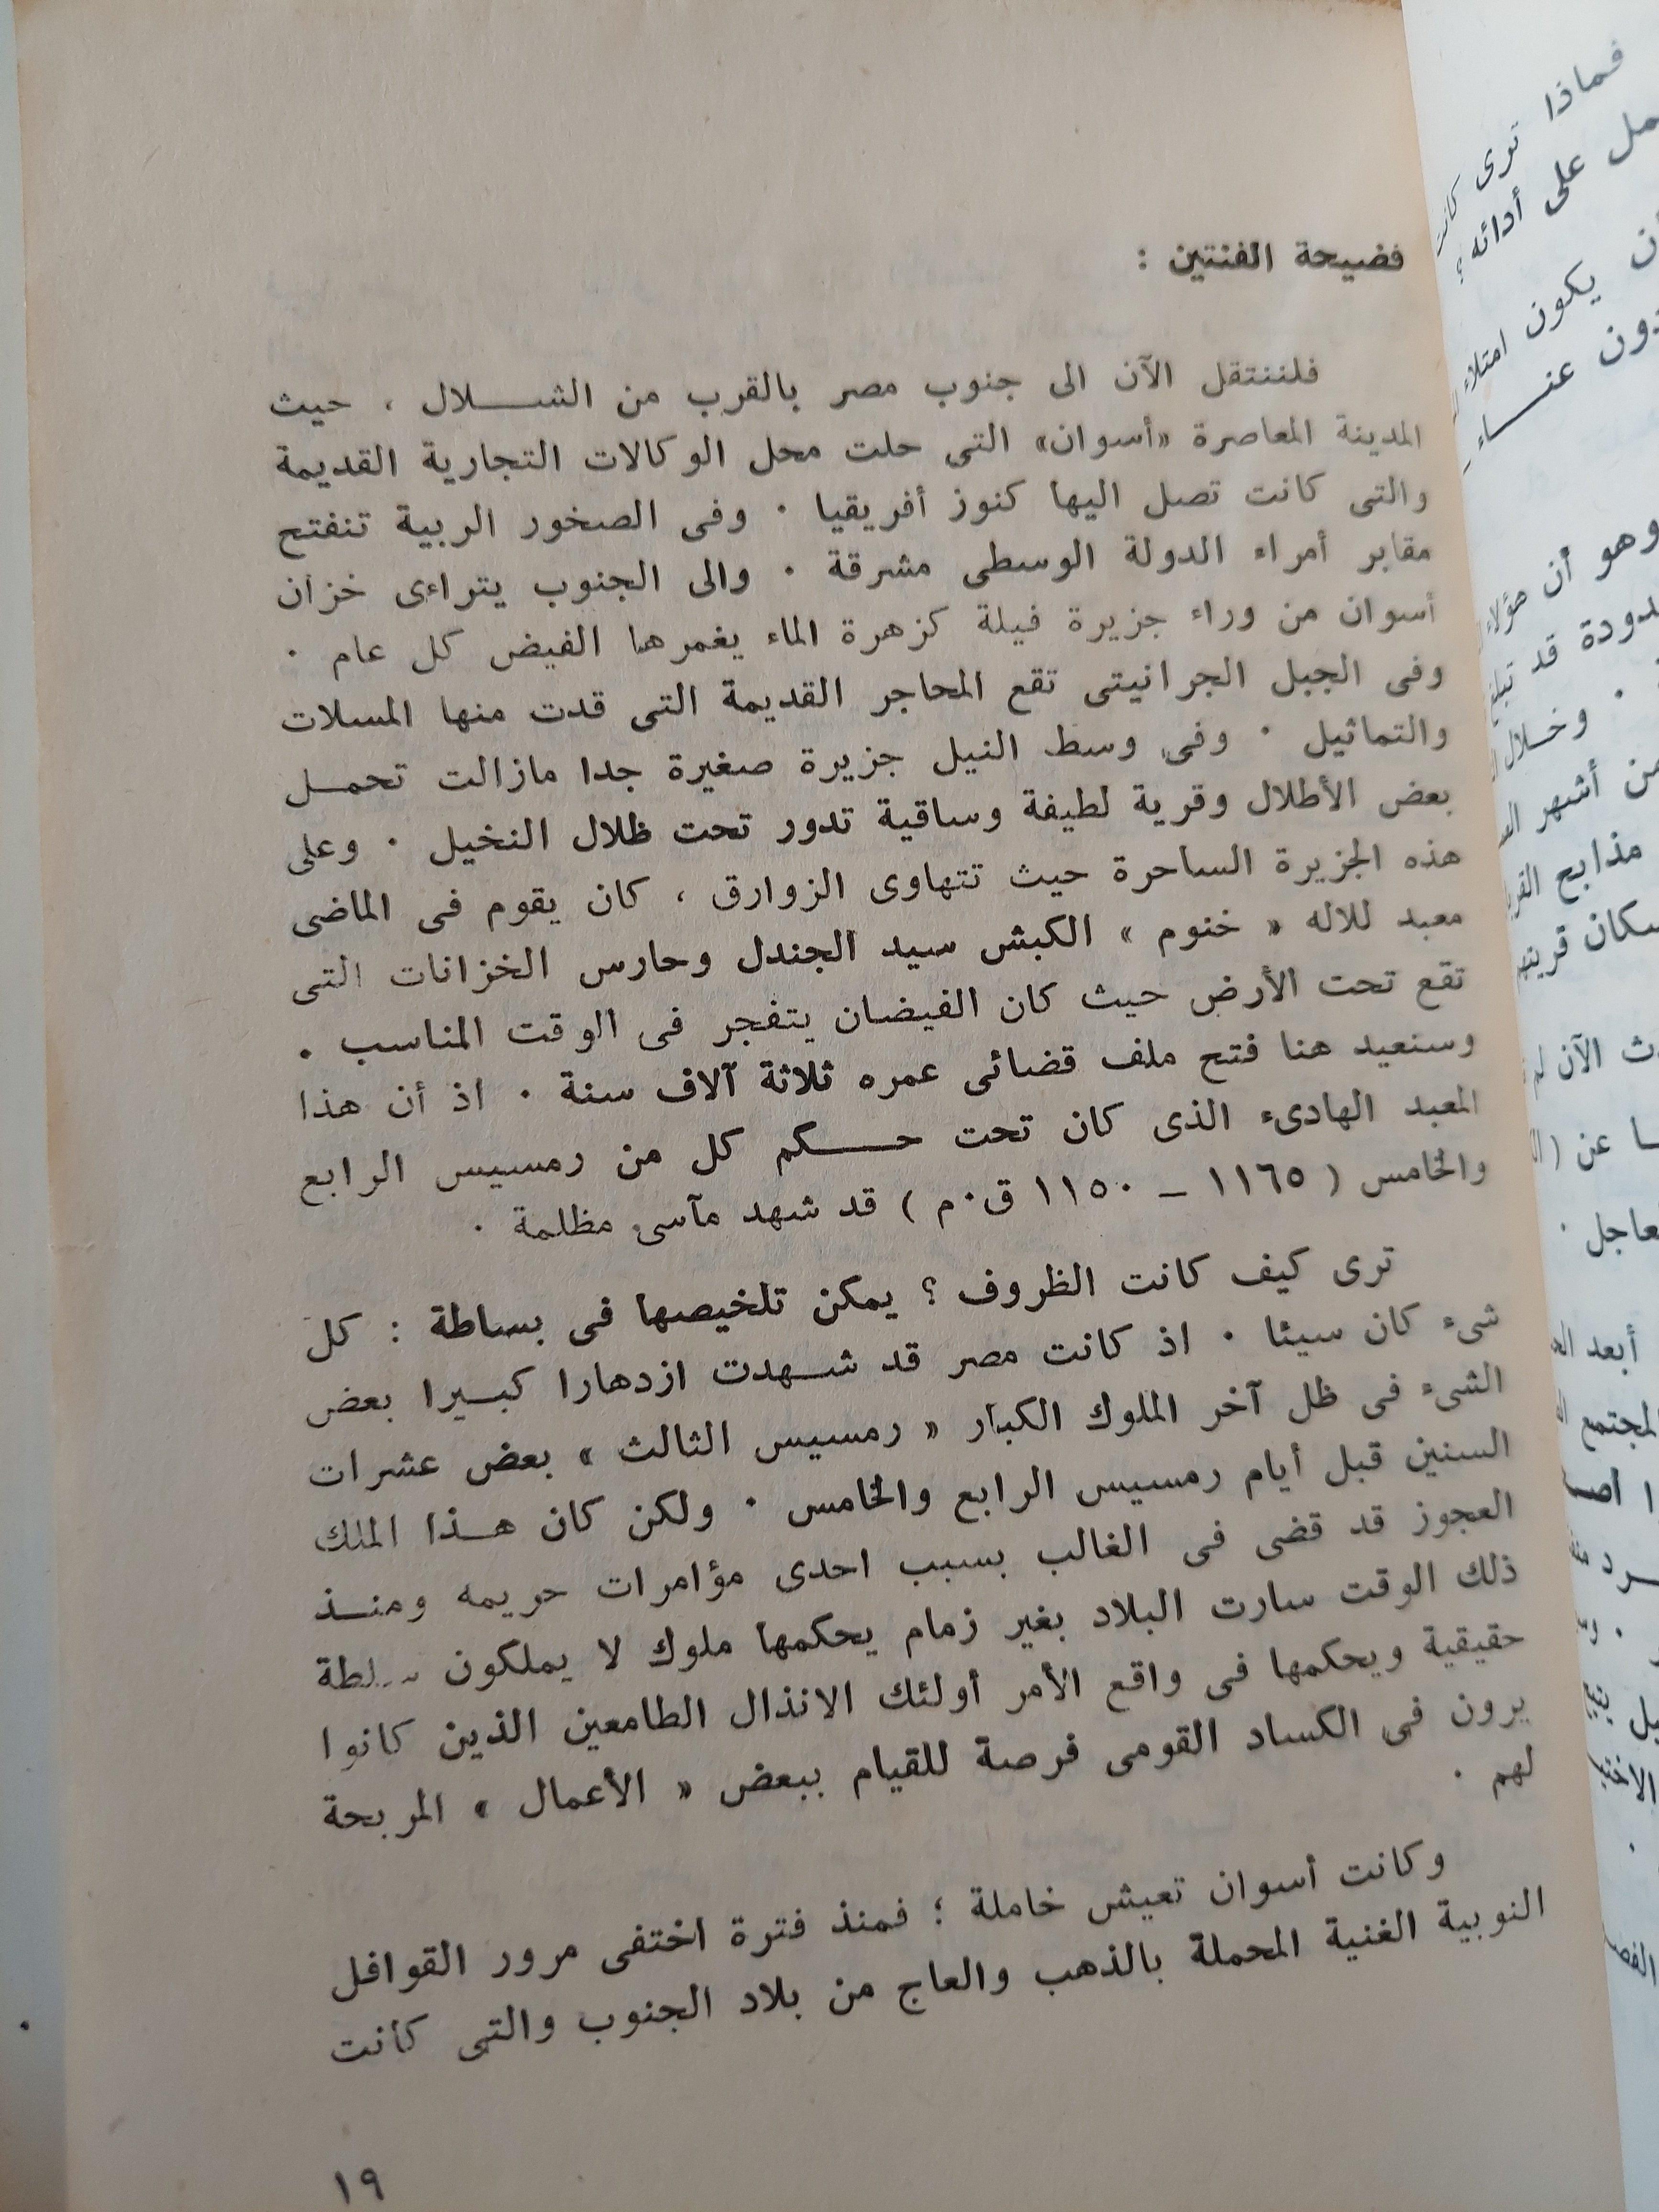 فضيحة الفنتين :
فلننتقل الآن الى جنوب مصر بالقرب من الشــلال ، حيث
المدينة المعاصرة «أسوان» التى حلت محل الوكالات التجارية القديمة
والتى كانت تصل اليها كنوز أفريقيا . وفى الصخور الربية تنفتح
مقابر أمراء الدولة الوسطى مشرقة . والى الجنوب يتراءى خزان
أسوان من وراء جزيرة فيلة كزهرة الماء يغمرها الفيض كل عام .
وفى الجبل الجرانيتى تقع المحاجر القديمة التى قدت منها المسلات
والتماثيل . وفى وسط النيل جزيرة صغيرة جدا مازالت تحمــل
بعض الأطلال وقرية لطيفة وساقية تدور تحت ظلال النخيل . وعلى
هذه الجزيرة الساحرة حيث تتهاوى الزوارق ، كان يقوم فى الماضى
معبد للاله « خنوم » الكبش سيد الجندل وحارس الخزانات التى
تقع تحت الأرض حيث كان الفيضان يتفجر فى الوقت المناسب .
وسنعيد هنا فتح ملف قضائى عمره ثلاثة آلاف سنة . اذ أن هذا
المعبد الهادىء الذى كان تحت حــكم كل من رمسيس الرابع
والخامس ( ١١٦٥ ــ ١١٥٠ ق.م ) قد شهد مآسى مظلمة .
ترى كيف كانت الظروف ؟ يمكن تلخيصها فى بساطة : كل
شىء كان سيئا . اذ كانت مصر قد شــهدت ازدهارا كبــيرا بعض
الشىء فى ظل آخر الملوك الكبار « رمسيس الثالث » بعض عشرات
السنين قبل أيام رمسيس الرابع والخامس . ولكن كان هــذا الملك
العجوز قد قضى فى الغالب بسبب احدى مؤامرات حريمه ومنــذ
ذلك الوقت سارت البلاد بغير زمام يحكمها ملوك لا يملكون سلطة
حقيقية ويحكمها فى واقع الأمر أولئك الانذال الطامعين الذين كانوا
يرون فى الكساد القومى فرصة للقيام ببعض « الأعمال » المربحة
لهم .
وكانت أسوان تعيش خاملة ؛ فمنذ فترة اختفى مرور القوافل
النوبية الغنية المحملة بالذهب والعاج من بلاد الجنوب والتى كانت
١٩
فماذا ترى كانت
على أدائه ؟
يكون امتلاء
عنــاء
وهو أن هؤلاء
قد
وخــلال
من أشهر
مذابح
سكان
الآن
عن
أبعد
المجتمع